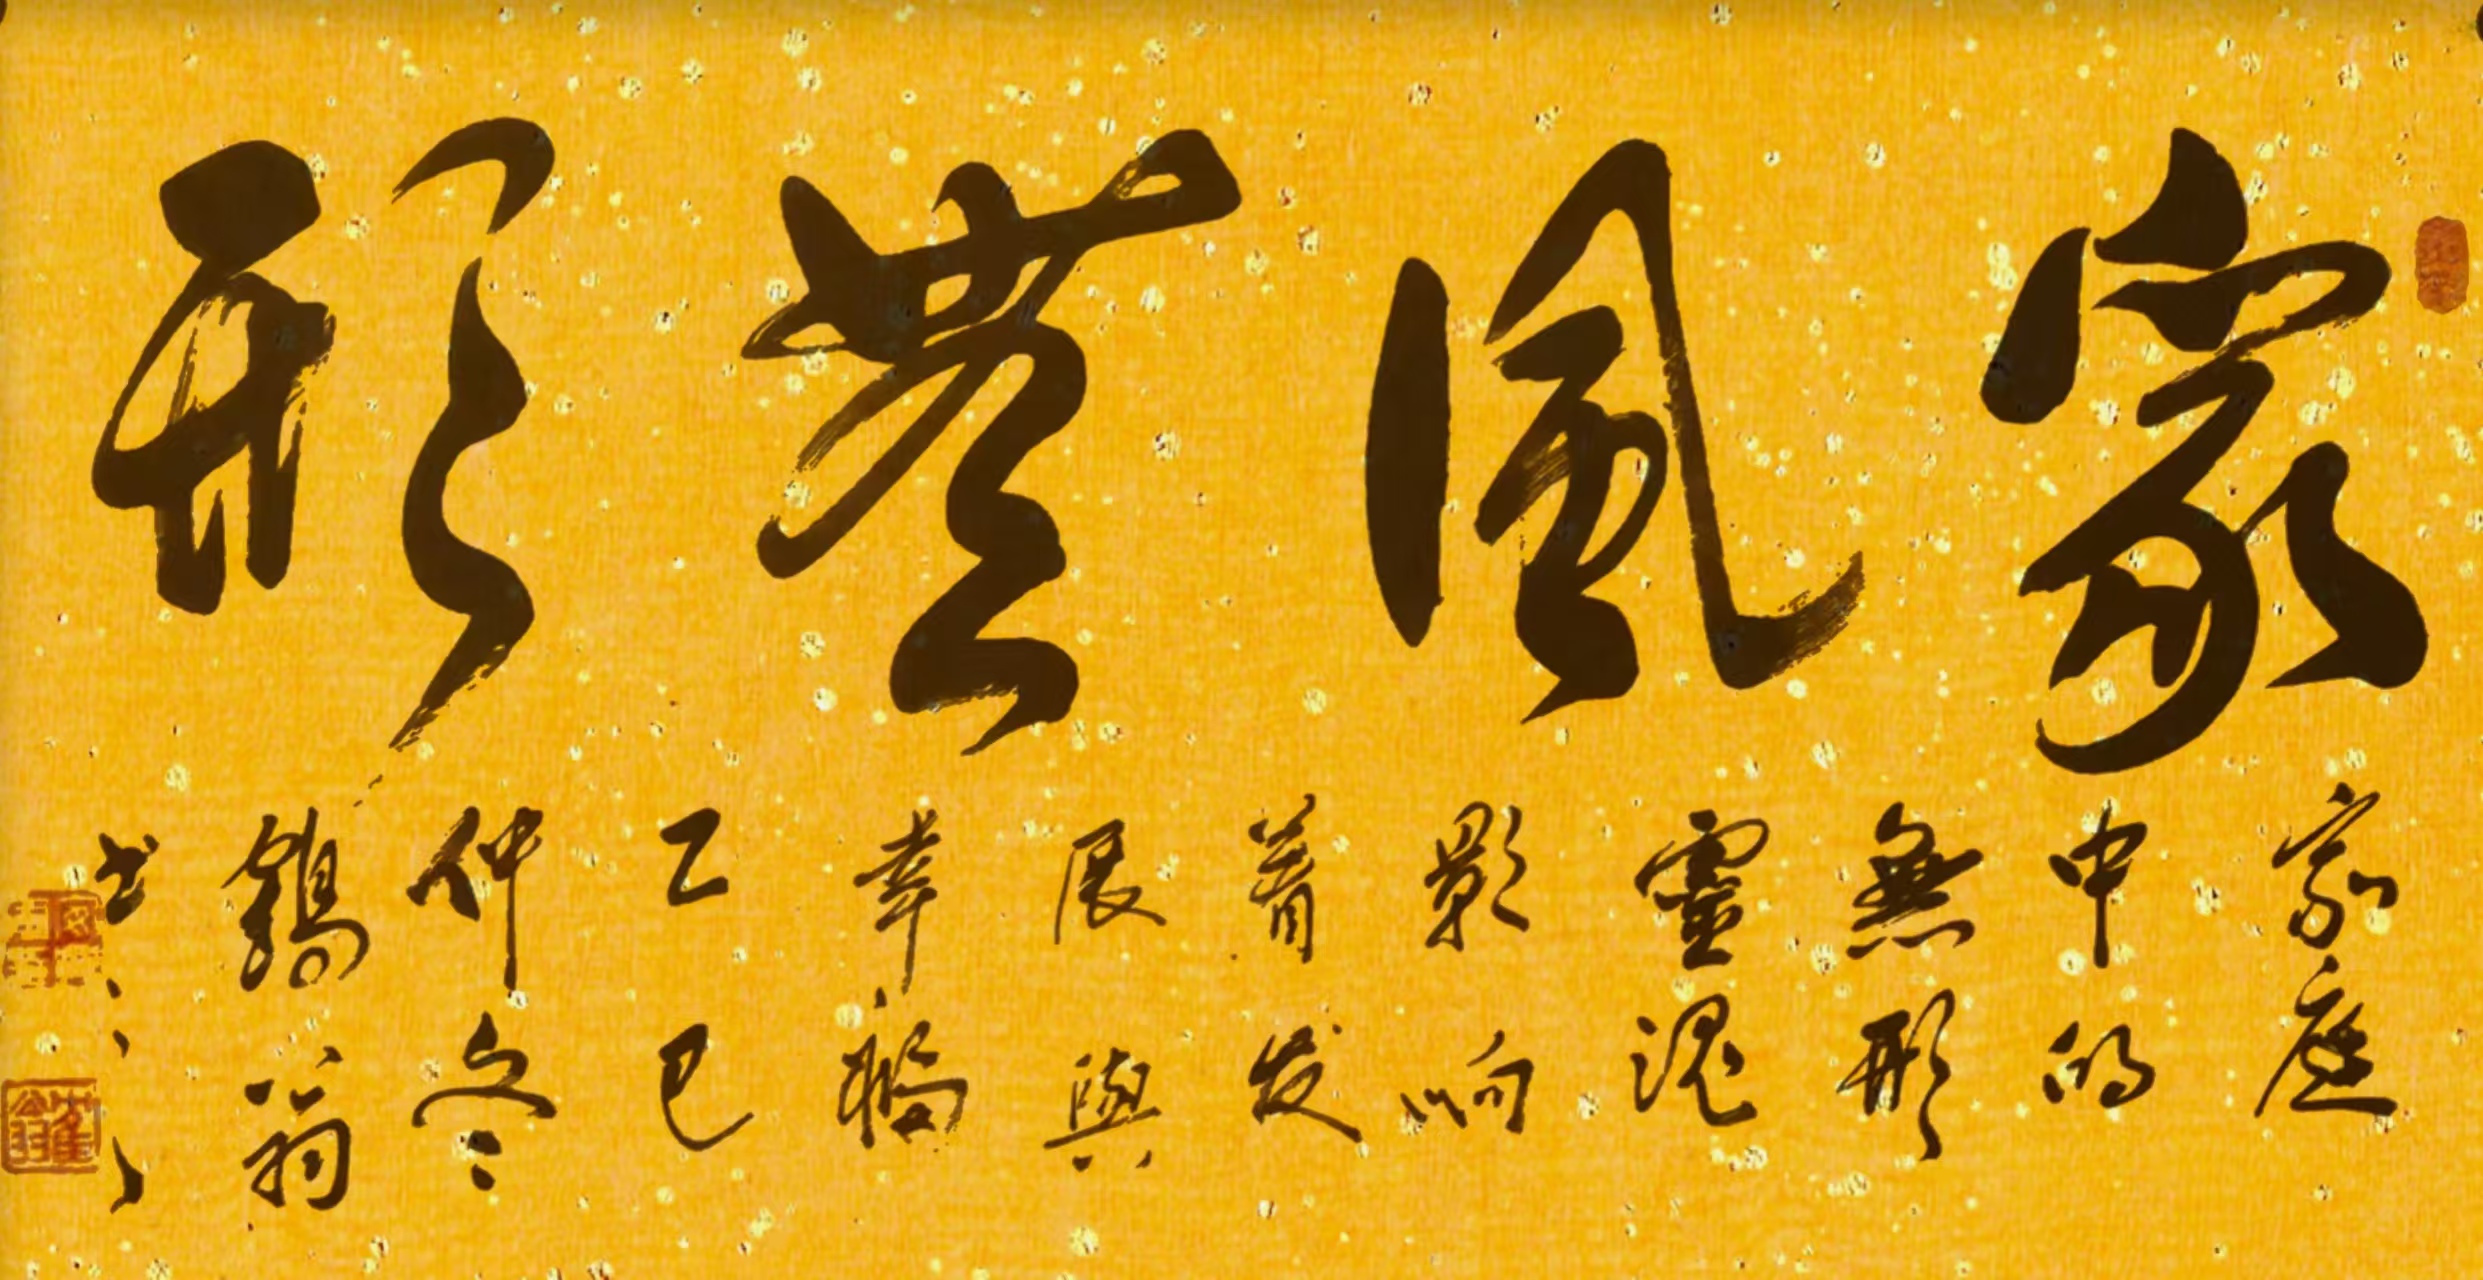 家風無形
家庭
中的
無形
靈魂
影响
着发
展與
幸福
乙巳
仲冬
鶴翁
书